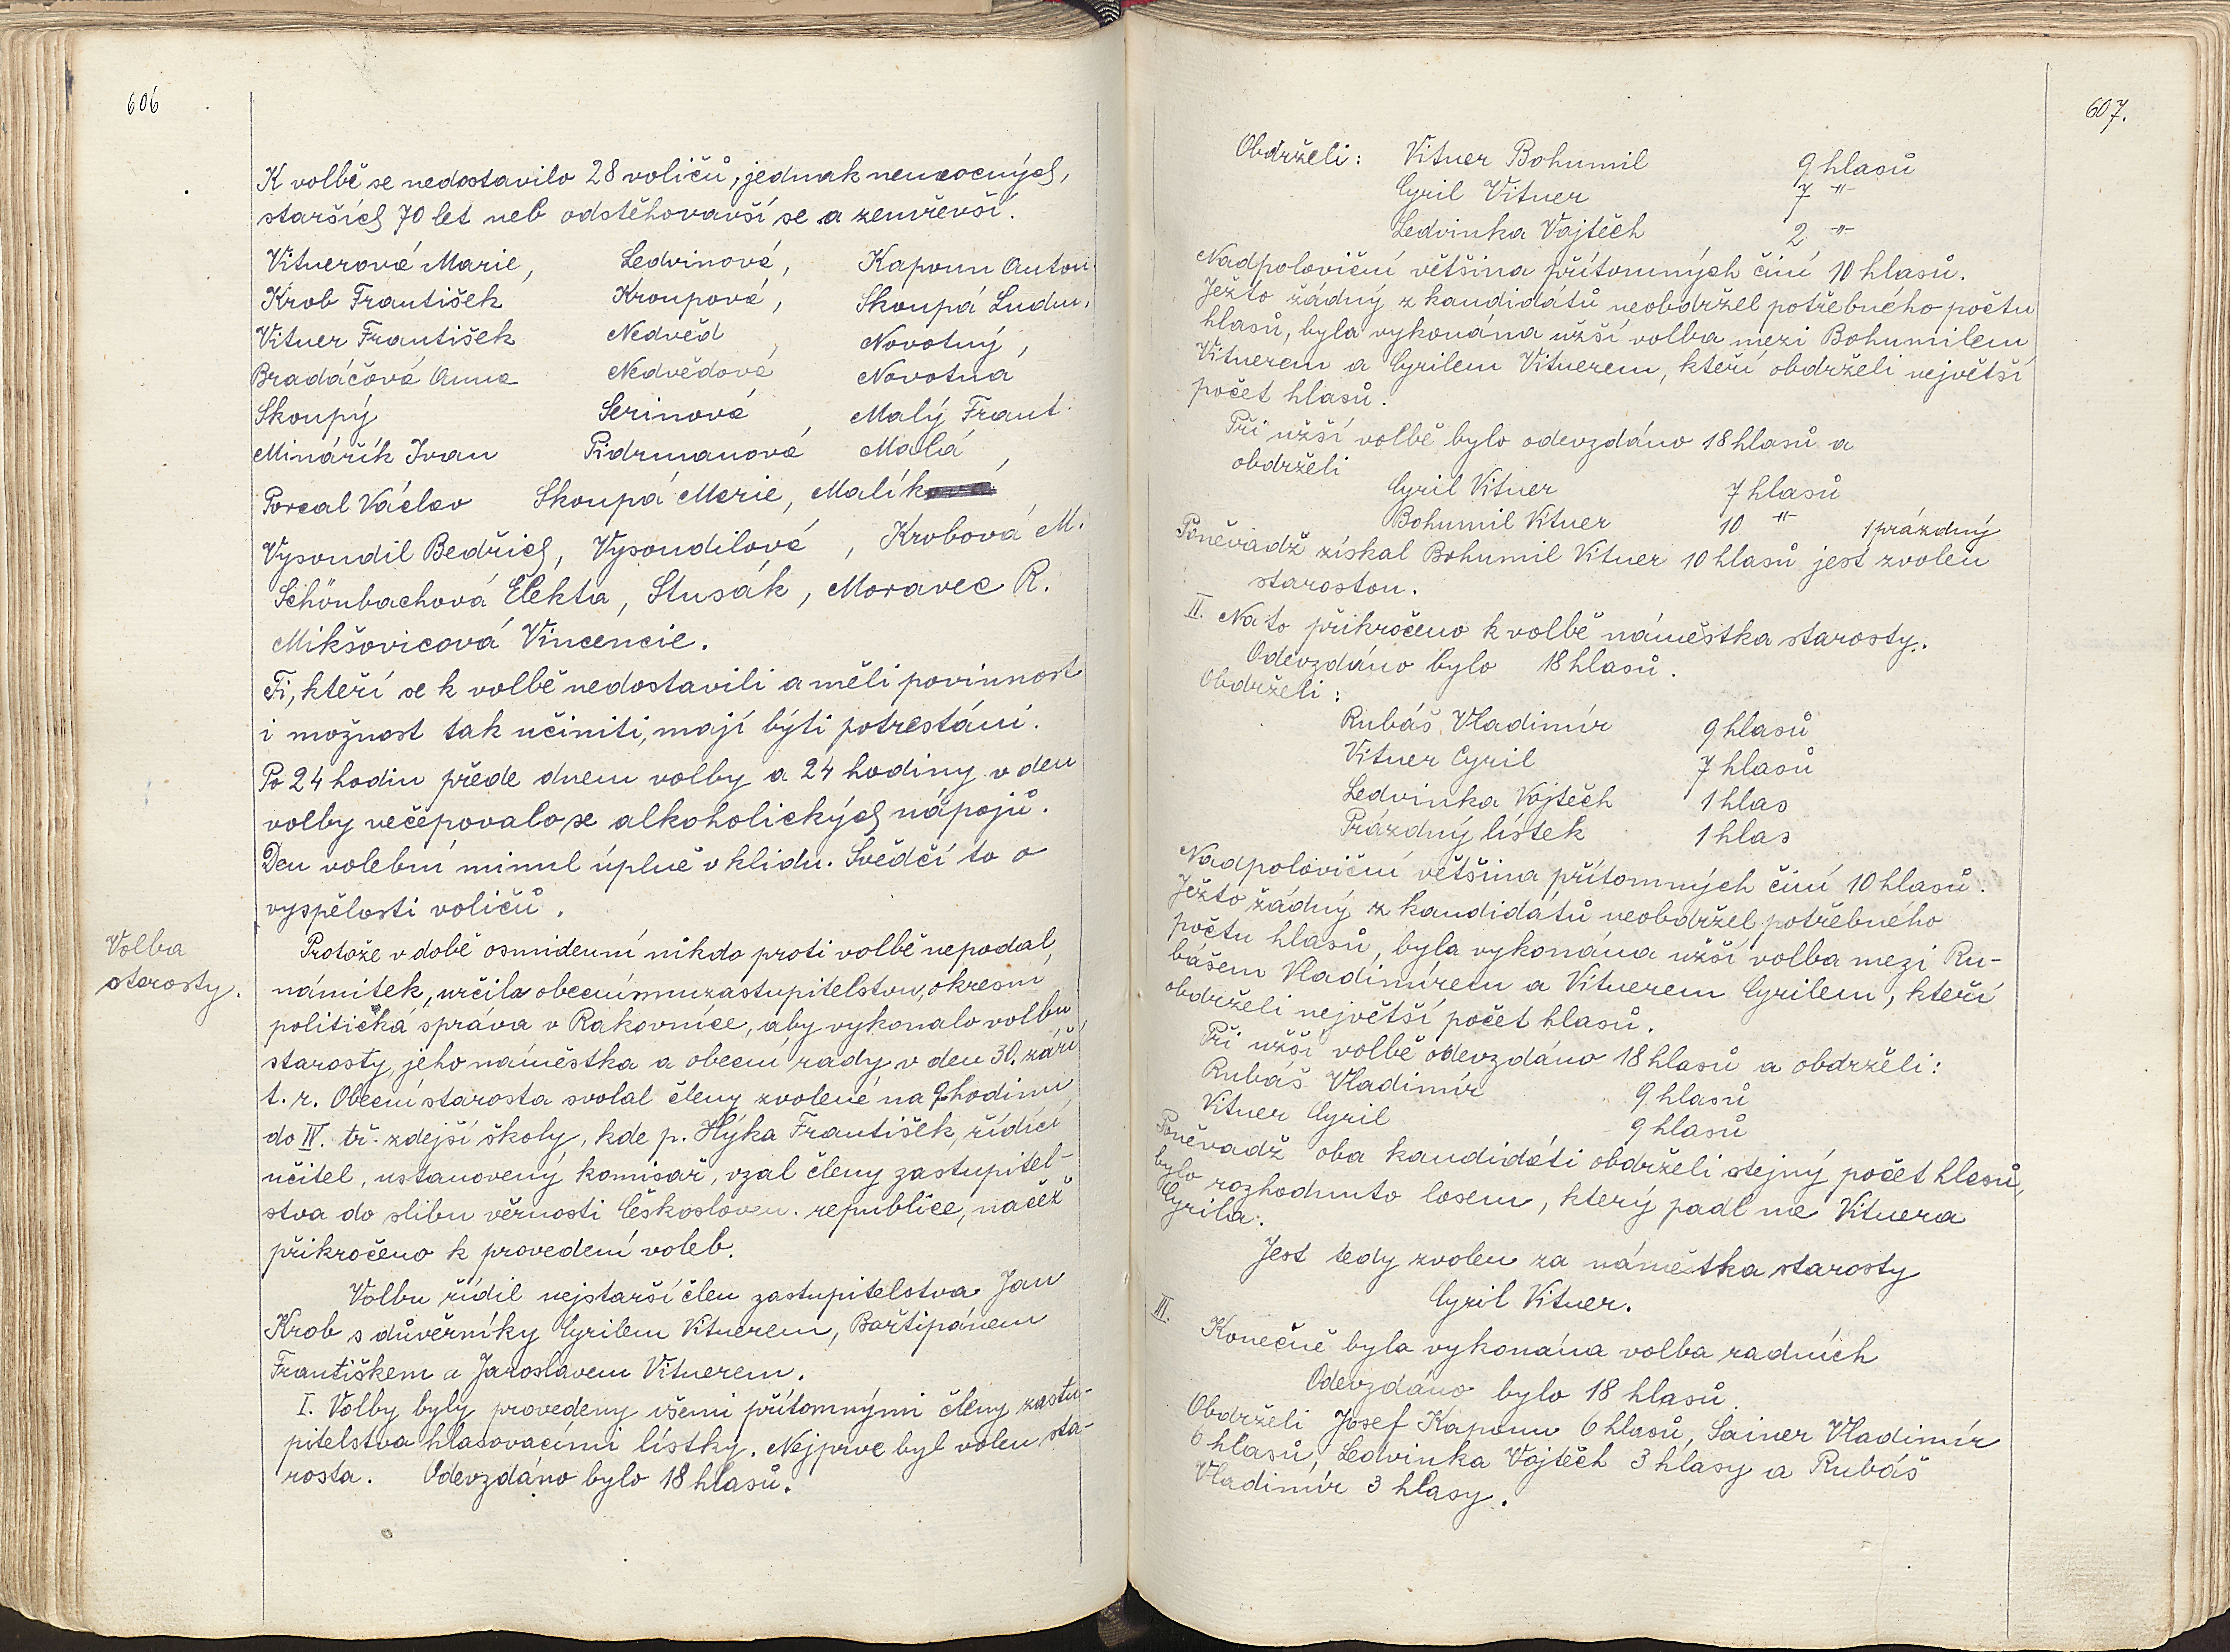 606
K volbě se nedostavilo 28 voličů, jednak nemocných,
starších 70 let neb odstěhovavší se a zemřevší.
Vitnerová Marie, Ledvinová, Kapoun Anton.
Krob František Kroupová, Skoupá Ludm.
Vitner František Nedvěd, Novotný,
Bradáčová Anna Nedvědová Novotná
Skoupý Serinová, Malý Frant.
Minářík Ivan Pidrmanová Malá,
Porcal Václav Skoupá Marie, Malík
Vysoudil Bedřich, Vysoudilová, Krobová M.
Schönbachová Elekta, Stusák, Moravec R.
Mikšovicová Vincencie.
Ti, kteří se k volbě nedostavili a měli povinnost
i možnost tak učiniti, mají býti potrestáni.
Po 24 hodin přede dnem volby a 24 hodiny v den
volby nečepovalo se alkoholických nápojů.
Den volební minul úplně v klidu. Svědčí to o
vyspělosti voličů.
Volba
starosty.
Protože v době osmidenní nikdo proti volbě nepodal
námitek, určila obecnímu zastupitelstvu, okresní
politická správa v Rakovníce, aby vykonalo volbu
starosty, jeho náměstka a obecní rady v den 30. září
t. r. Obecní starosta svolal členy zvolené na 9 hodinu
do IV. tř. zdejší školy, kde p. Hýka František, řídící
učitel, ustanovený komisař, vzal členy zastupitel-
stva do slibu věrnosti Českosloven. republice, načež
přikročeno k provedení voleb.
Volbu řídil nejstarší člen zastupitelstva Jan
Krob s důvěrníky Cyrilem Vitnerem, Bařtipánem
Františkem a Jaroslavem Vitnerem.
I. Volby byly provedeny všemi přítomnými členy zastu-
pitelstva hlasovacími lístky. Nejprve byl volen sta-
rosta. Odevzdáno bylo 18 hlasů.
607.
Obdrželi: Vitner Bohumil 9 hlasů
Cyril Vitner 7 -"-
Ledvinka Vojtěch 2 -"-
Nadpoloviční většina přítomných činí 10 hlasů.
Ježto žádný z kandidátů neobdržel potřebného počtu
hlasů, byla vykonána užší volba mezi Bohumilem
Vitnerem a Cyrilem Vitnerem, kteří obdrželi největší
počet hlasů.
Při užší volbě bylo odevzdáno 18 hlasů a
obdrželi
Cyril Vitner 7 hlasů
Bohumil Vitner 10 -"- 1 prázdný
Poněvadž získal Bohumil Vitner 10 hlasů jest zvolen
starostou.
II. Na to přikročeno k volbě náměstka starosty.
Odevzdáno bylo 18 hlasů.
Obdrželi:
Rubáš Vladimír 9 hlasů
Vitner Cyril 7 hlasů
Ledvinka Vojtěch 1 hlas
Prázdný lístek 1 hlas
Nadpoloviční většina přítomných činí 10 hlasů.
Ježto žádný z kandidátů neobdržel potřebného
počtu hlasů, byla vykonána užší volba mezi Ru-
bášem Vladimírem a Vitnerem Cyrilem, kteří
obdrželi největší počet hlasů.
Při užší volbě odevzdáno 18 hlasů a obdrželi:
Rubáš Vladimír 9 hlasů
Vitner Cyril 9 hlasů
Poněvadž oba kandidáti obdrželi stejný počet hlasů,
bylo rozhodnuto losem, který padl na Vitnera
Cyrila.
Jest tedy zvolen za námětka starosty
Cyril Vitner.
III. Konečně byla vykonána volba radních
Odevzdáno bylo 18 hlasů.
Obdrželi Josef Kapoun 6 hlasů, Sainer Vladimír
6 hlasů, Ledvinka Vojtěch 3 hlasy a Rubáš
Vladimír 3 hlasy.